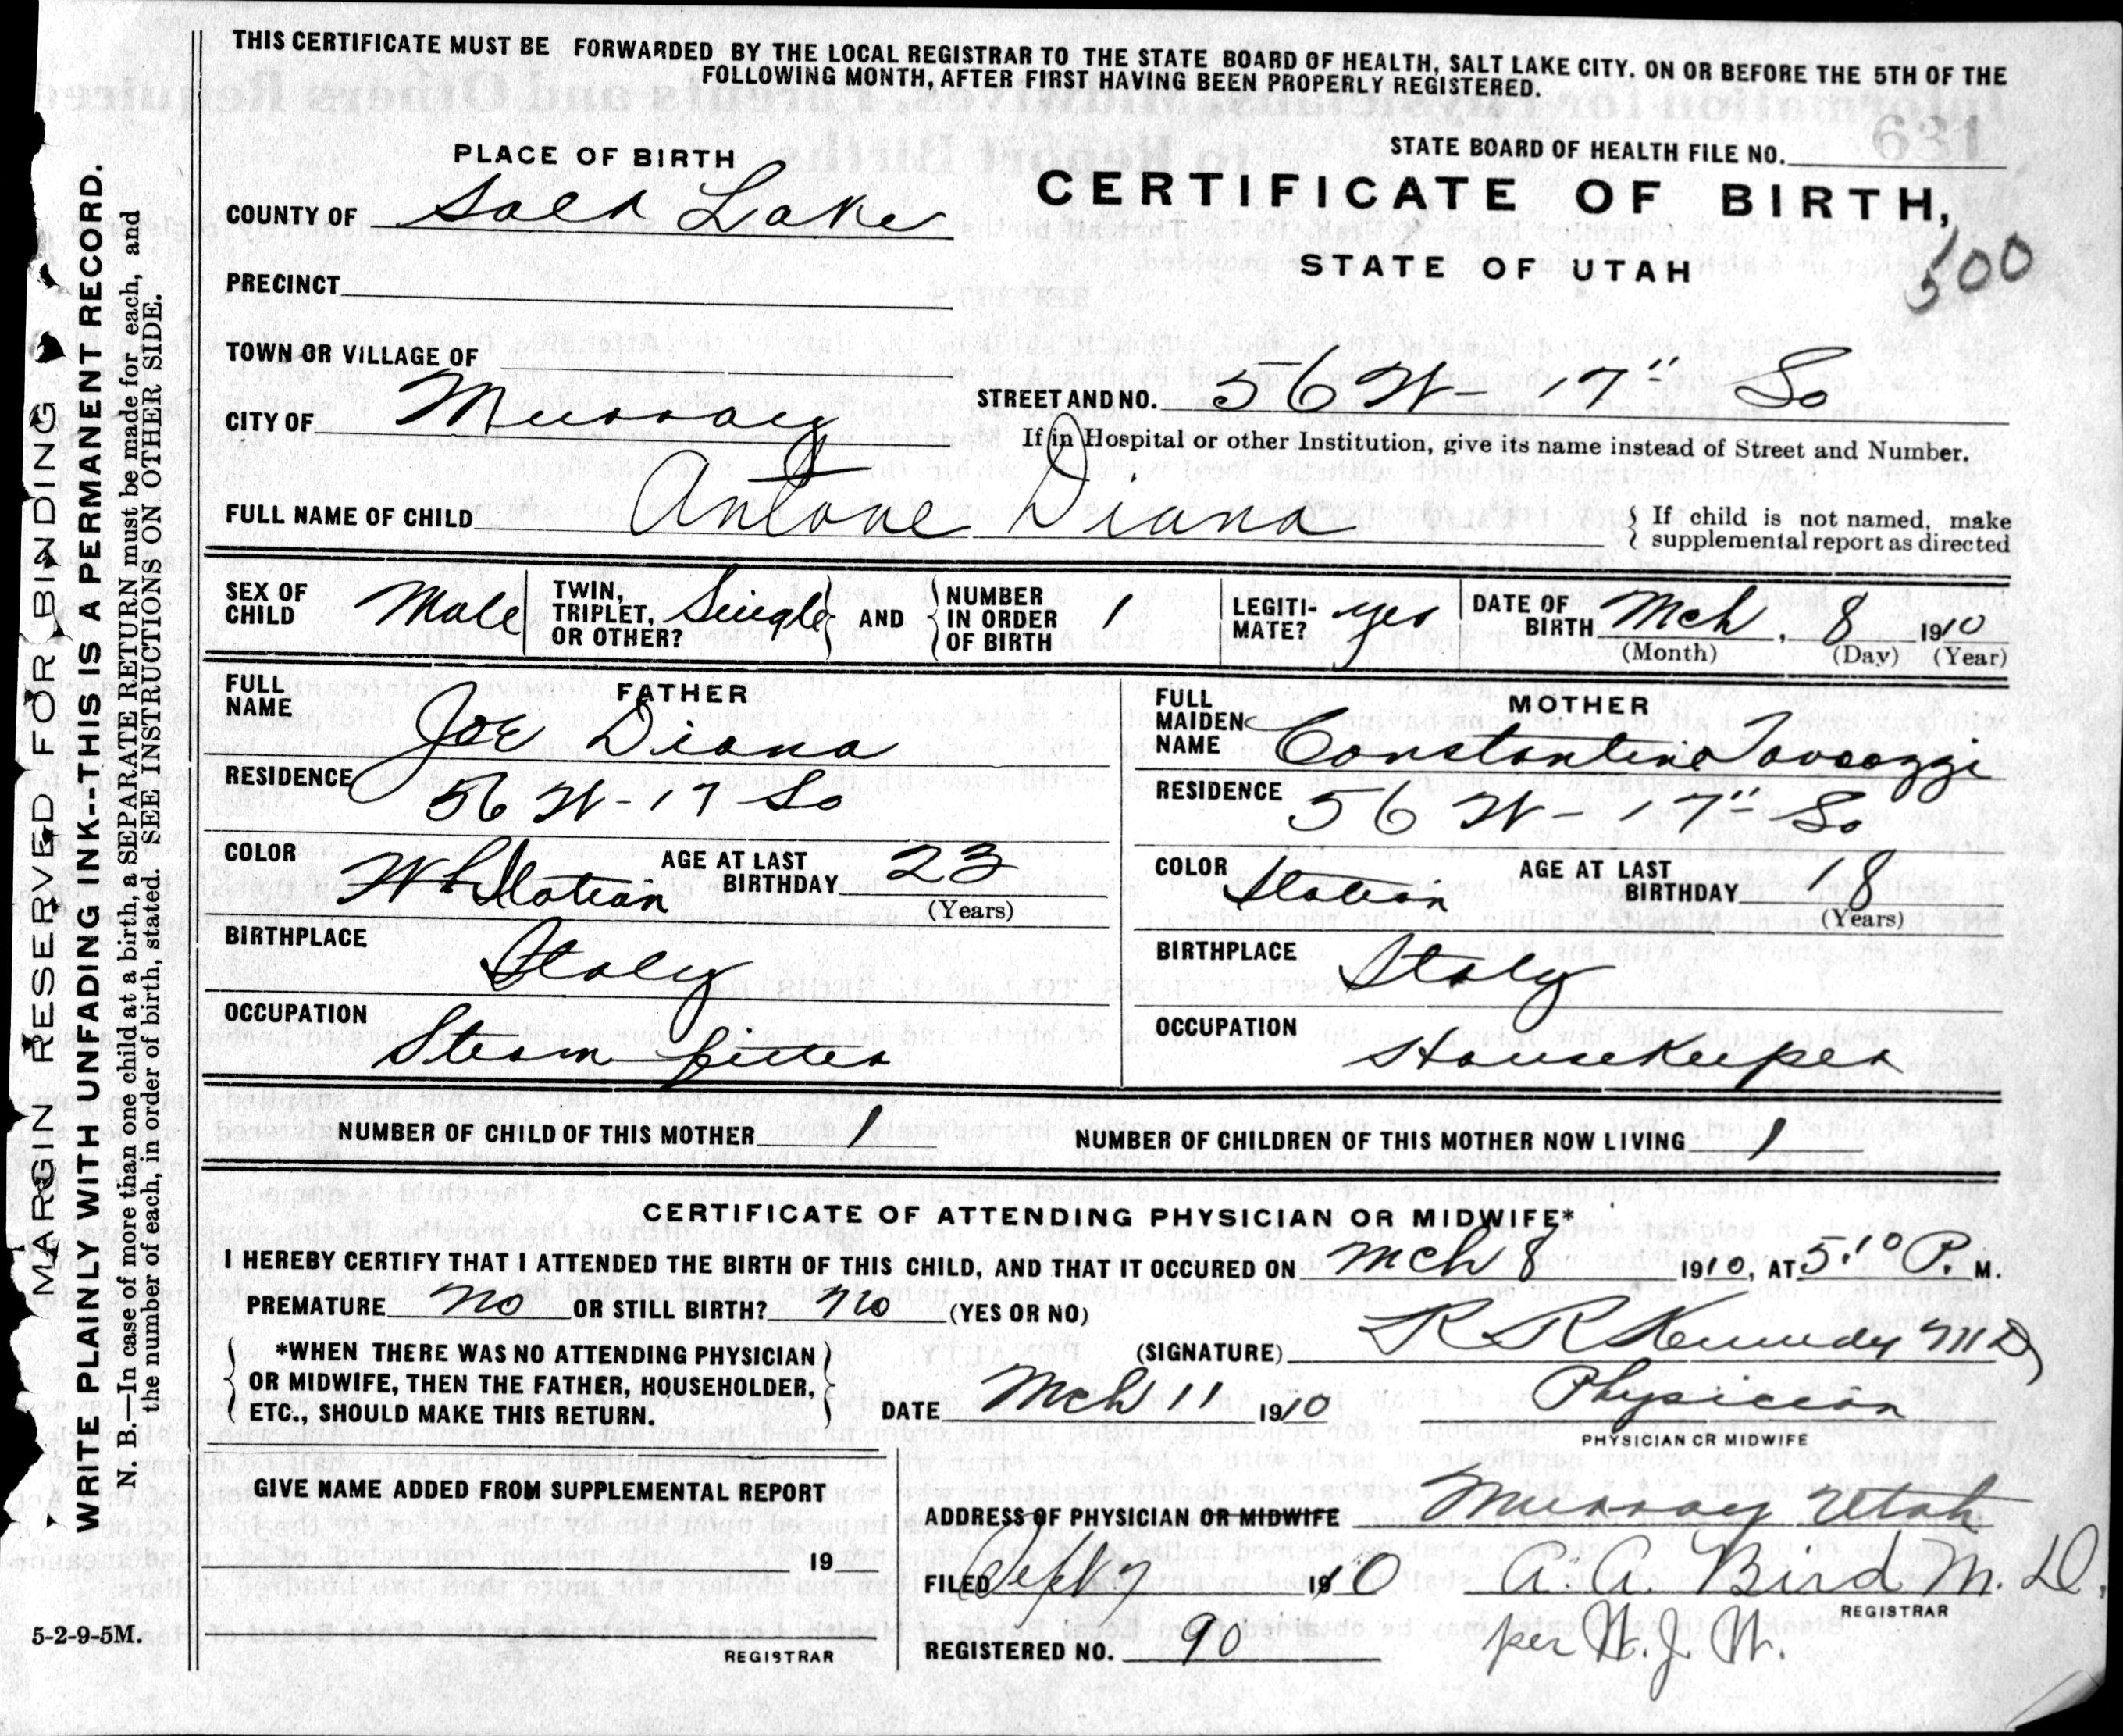 THIS CERTIFICATE MUST BE FORWARDED BY THE LOCAL REGISTRAR TO THE STATE BOARD OF HEALTH, SALT LAKE CITY. ON OR BEFORE THE 5TH OF THE
FOLLOWING MONTH, AFTER FIRST HAVING BEEN PROPERLY REGISTERED.
PLACE OF BIRTH
STATE BOARD OF HEALTH FILE NO. 631
COUNTY OF Salt Lake
CERTIFICATE OF BIRTH,
500
PRECINCT
STATE OF UTAH
TOWN OR VILLAGE OF
STREET AND NO. 56 W - 17" So
CITY OF Murray
If in Hospital or other Institution, give its name instead of Street and Number.
FULL NAME OF CHILD Antone Diana
If child is not named, make
supplemental report as directed
SEX OF CHILD Male
TWIN, TRIPLET, OR OTHER? Single
AND NUMBER IN ORDER OF BIRTH 1
LEGITI- MATE? yes
DATE OF BIRTH Mch. 8 1910
(Month) (Day) (Year)
FATHER
FULL NAME Joe Diana
RESIDENCE 56 W - 17 So
COLOR Italian
AGE AT LAST BIRTHDAY 23
(Years)
BIRTHPLACE Italy
OCCUPATION Steam fitter
MOTHER
FULL MAIDEN NAME Constantina
RESIDENCE 56 W - 17" So
COLOR Italian
AGE AT LAST BIRTHDAY 18
(Years)
BIRTHPLACE Italy
OCCUPATION Housekeeper
NUMBER OF CHILD OF THIS MOTHER 1
NUMBER OF CHILDREN OF THIS MOTHER NOW LIVING 1
CERTIFICATE OF ATTENDING PHYSICIAN OR MIDWIFE*
I HEREBY CERTIFY THAT I ATTENDED THE BIRTH OF THIS CHILD, AND THAT IT OCCURED ON Mch 8 1910, AT 5:10 P. M.
PREMATURE no OR STILL BIRTH? no (YES OR NO)
*WHEN THERE WAS NO ATTENDING PHYSICIAN
OR MIDWIFE, THEN THE FATHER, HOUSEHOLDER,
ETC., SHOULD MAKE THIS RETURN.
(SIGNATURE) R R Kennedy MD
DATE Mch 11 1910
Physician
PHYSICIAN OR MIDWIFE
GIVE NAME ADDED FROM SUPPLEMENTAL REPORT
19
REGISTRAR
ADDRESS OF PHYSICIAN OR MIDWIFE Murray Utah
FILED 1910 A. A. Bird M. D.
REGISTRAR
REGISTERED NO. 90
per W. J. W.
5-2-9-5M.
MARGIN RESERVED FOR BINDING
WRITE PLAINLY WITH UNFADING INK--THIS IS A PERMANENT RECORD.
N. B.—In case of more than one child at a birth, a SEPARATE RETURN must be made for each, and
the number of each, in order of birth, stated. SEE INSTRUCTIONS ON OTHER SIDE.